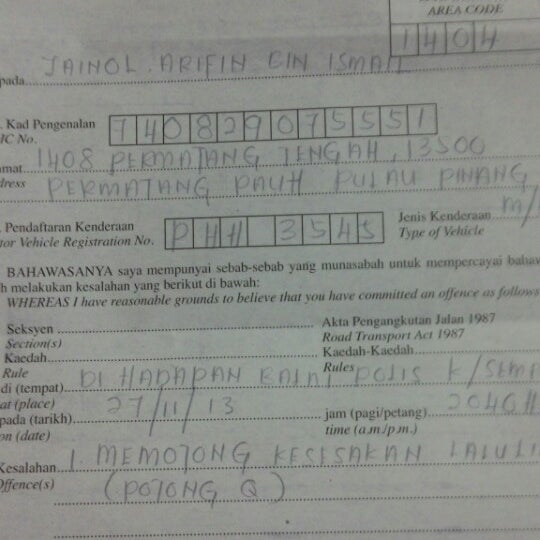 AREA CODE
1404
pada JAINOL ARIFIN BIN ISMAIL
Kad Pengenalan 740829075551
IC No.
mat 1408 PERMATANG TENGAH, 13500
dress PERMATANG PAUH PULAU PINANG
Pendaftaran Kenderaan PHH 3545 Jenis Kenderaan M/
tor Vehicle Registration No. Type of Vehicle
BAHAWASANYA saya mempunyai sebab-sebab yang munasabah untuk mempercayai bahaw
h melakukan kesalahan yang berikut di bawah:
WHEREAS I have reasonable grounds to believe that you have committed an offence as follows
Seksyen Akta Pengangkutan Jalan 1987
Section(s) Road Transport Act 1987
Kaedah Kaedah-Kaedah
Rule Rules
di (tempat) DI HADAPAN BALAI POLIS K/SEM
at (place)
pada (tarikh) 27/11/13 jam (pagi/petang) 2046H
on (date) time (a.m./p.m.)
Kesalahan 1. MEMOTONG KESESAKAN LALULI
Offence(s) (POTONG Q)